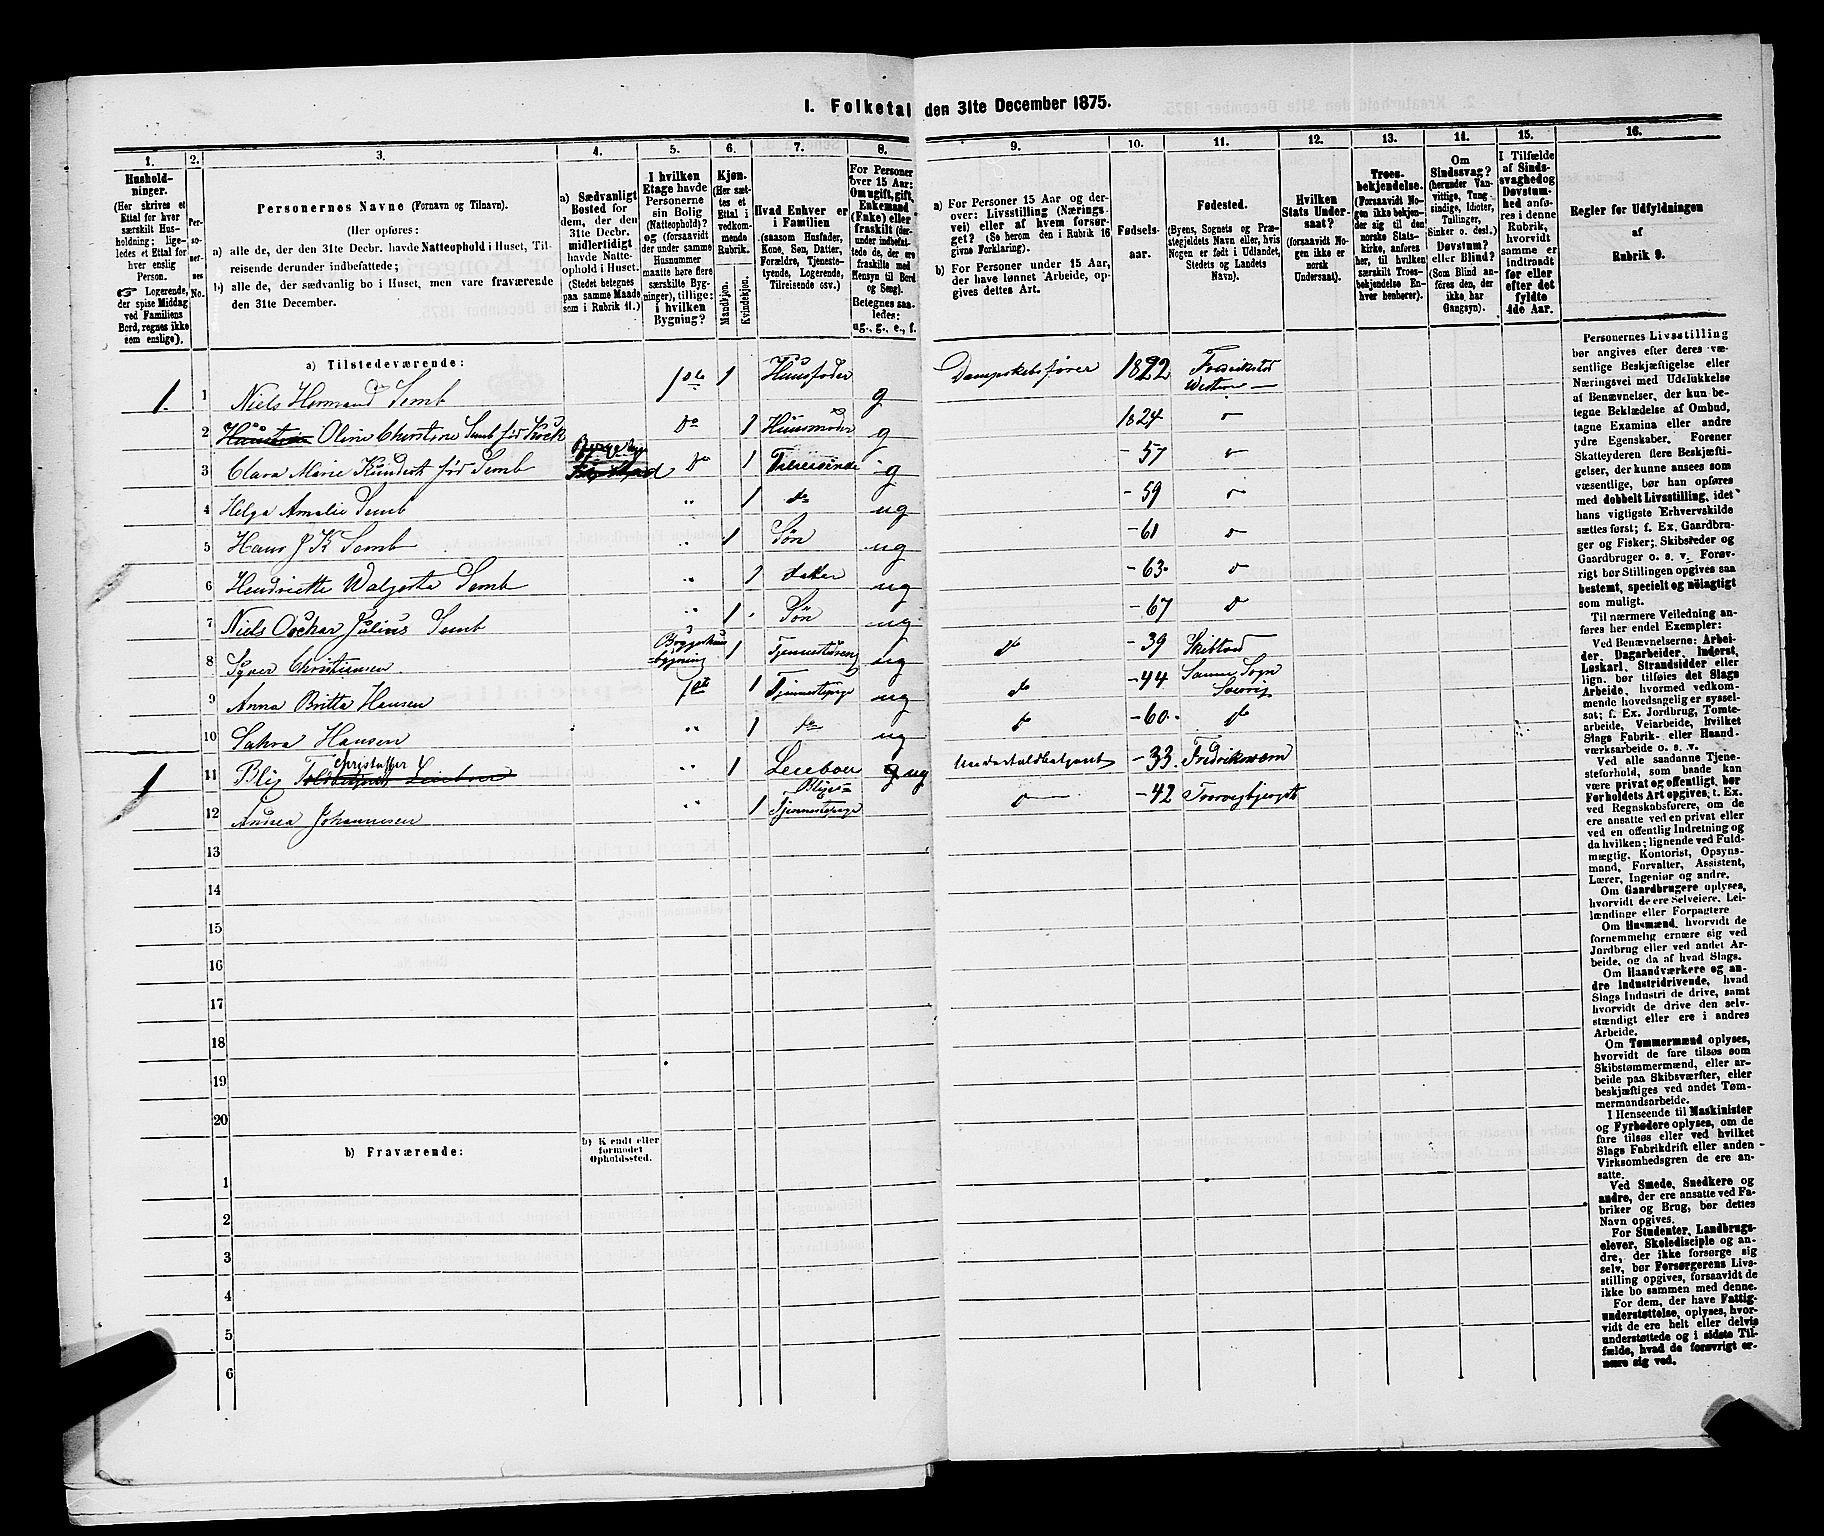 I. Folketal den 31te December 1875.
1. 2. 3. 4. 5. 6. 7. 8. 9. 10. 11. 12. 13. 14. 15. 16.
Hushold-
ninger.
(Her skrives et
Ettal for hver
særskilt Hus-
holdning; lige-
ledes et Ettal for
hver enslig
Person.
☞ Logerende,
der spise Middag
ved Familiens
Bord, regnes ikke
som enslige).
Per-
so-
ner-
nes
No.
Personernes Navne (Fornavn og Tilnavn).
(Her opføres:
a) alle de, der den 31te Decbr. havde Natteophold i Huset, Til-
reisende derunder indbefattede;
b) alle de, der sædvanlig bo i Huset, men vare fraværende
den 31te December.
a) Sædvanligt
Bosted for
dem, der den
31te Decbr.
midlertidigt
havde Natte-
ophold i Huset.
(Stedet betegnes
paa samme Maade
som i Rubrik 11.)
I hvilken
Etage havde
Personerne
sin Bolig
(Natteophold)?
og (forsaavidt
der under samme
Husnummer
maatte høre flere
særskilte Byg-
ninger), tillige:
i hvilken
Bygning?
Kjøn.
(Her sæt-
tes et
Ettal i
vedkom-
mende
Rubrik.
Mandkjøn.
Kvindekjøn.
Hvad Enhver er
i Familien
(saasom Husfader,
Kone, Søn, Datter,
Forældre, Tjeneste-
tyende, Logerende,
Tilreisende osv.)
For Personer
over 15 Aar:
Om ugift, gift,
Enkemand
(Enke) eller
fraskilt (der-
under indbefat-
tede de, der ere
fraskilte med
Hensyn til Bord
og Seng).
Betegnes saa-
ledes:
ug., g., e., f.
a) For Personer 15 Aar og der-
over: Livsstilling (Nærings-
vei) eller af hvem forsør-
get? (Se herom den i Rubrik 16
givne Forklaring).
b) For Personer under 15 Aar,
der have lønnet Arbeide, op-
gives dettes Art.
Fødsels-
aar.
Fødested.
(Byens, Sognets og Præ-
stegjeldets Navn eller, hvis
Nogen er født i Udlandet,
Stedets og Landets
Navn).
Hvilken
Stats Under-
saat?
(forsaavidt No-
gen ikke er
norsk
Undersaat).
Troes-
bekjendelse.
(Forsaavidt No-
gen ikke bekjen-
der sig til den
norske Stats-
kirke, anføres
her, til hvilken
særskilt Troes-
bekjendelse En-
hver henhører).
Om
Sindssvag?
(herunder Van-
vittige, Tung-
sindige, Idioter,
Tullinger,
Sinker o. desl.)
Døvstum?
eller Blind?
(Som Blind an-
føres den, der
ikke har
Gangsyn).
I Tilfælde
af Sinds-
svaghed og
Døvstum-
hed anfø-
res i denne
Rubrik,
hvorvidt
samme er
indtraadt
før eller
efter det
fyldte
4de Aar.
Regler for Udfyldningen
af
Rubrik 9.
a) Tilstedeværende:
1. 1 Niels Hermand Semb 1ste 1 Huusfader g Dampskibsfører 1822 Fredrikstad
Vestsiden
2 Oline Christine Semb fød Kock Do 1 Huusmoder g 1824 do
3 Clara Marie fød Semb Do 1 Tilreisende g - 57 do
4 Helga Amalie Semb " 1 do ug - 59 do
5 Hans J K Semb " 1 Søn ug - 61 do
6 Hendriette Walgerda Semb " 1 datter ug - 63 do
7 Niels Oschar Julius Semb " 1 Søn ug - 67 do
8 Christiansen Bryggerhuus
bygning 1 Tjenestedreng ug do - 39 Skibtved
9 Anna Britta Hansen 1st 1 Tjenestepige ug do - 44 Samme Sogn
10 Hansen " 1 do ug do - 60 do
1 11 Blix Christoffer " 1 Leieboer ug Undertoldbetjent - 33 Fredriksværn
12 Andrea Johannesen " 1 Blixs
Tjenestepige do - 42
13
14
15
16
17
18
19
20
b) Fraværende:
b) Kjendt eller
formodet
Opholdssted.
1
2
3
4
5
6
Personernes Livsstilling
bør angives efter deres væ-
sentlige Beskjæftigelse eller
Næringsvei med Udelukkelse
af Benævnelser, der kun be-
tegne Beklædelse af Ombud,
tagne Examina eller andre
ydre Egenskaber. Forener
Skatteyderen flere Beskjæfti-
gelser, der kunne ansees som
væsentlige, bør han opføres
med dobbelt Livsstilling, idet
hans vigtigste Erhvervskilde
sættes først; f. Ex. Gaardbru-
ger og Fisker; Skibsreder og
Gaardbruger o. s. v. Forøv-
rigt bør Stillingen opgives saa
bestemt, specielt og nöiagtigt
som muligt.
Til nærmere Veiledning an-
føres her endel Exempler:
Ved Benævnelserne: Arbei-
der, Dagarbeider, Inderst,
Løskarl, Strandsidder eller
lign. bør tilføies det Slags
Arbeide, hvormed vedkom-
mende hovedsagelig er syssel-
sat; f. Ex. Jordbrug, Tomte-
arbeide, Veiarbeide, hvilket
Slags Fabrik- eller Haand-
værksarbeide o. s. v.
Ved alle saadanne Tjene-
steforhold, som baade kan
være privat og offentligt, bør
Forholdets Art opgives; t. Ex.
ved Regnskabsførere, om de
ere ansatte ved en privat eller
ved en offentlig Indretning og
da hvilken; lignende ved Fuld-
mægtig, Kontorist, Opsyns-
mand, Forvalter, Assistent,
Lærer, Ingeniør og andre.
Om Gaardbrugere oplyses,
hvorvidt de ere Selveiere, Lei-
lændinge eller Forpagtere
Om Husmænd, hvorvidt de
fornemmelig ernære sig ved
Jordbrug eller ved andet Ar-
beide, og da af hvad Slags.
Om Haandværkere og an-
dre Industridrivende, hvad
Slags Industri de drive, samt
hvorvidt de drive den selv-
stændigt eller ere i andres
Arbeide.
Om Tømmermænd oplyses,
hvorvidt de fare tilsøs som
Skibstømmermænd, eller ar-
beide paa Skibsværfter, eller
beskjæftiges ved andet Tøm-
mermandsarbeide.
I Henseende til Maskinister
og Fyrbødere oplyses, om de
fare tilsøs eller ved hvilket
Slags Fabrikdrift eller anden
Virksomhedsgren de ere an-
satte.
Ved Smede, Snedkere og
andre, der ere ansatte ved Fa-
briker og Brug, bør dettes
Navn opgives.
For Studenter, Landbrugs-
elever, Skoledisciple og an-
dre, der ikke forsørge sig
selv, bør Forsørgerens Livs-
stilling opgives, forsaavidt de
ikke bo sammen med denne.
For dem, der have Fattig-
understøttelse, oplyses, hvor-
vidt de ere helt eller delvis
understøttede og i sidste Til-
fælde, hvad de forøvrigt er-
nære sig ved.